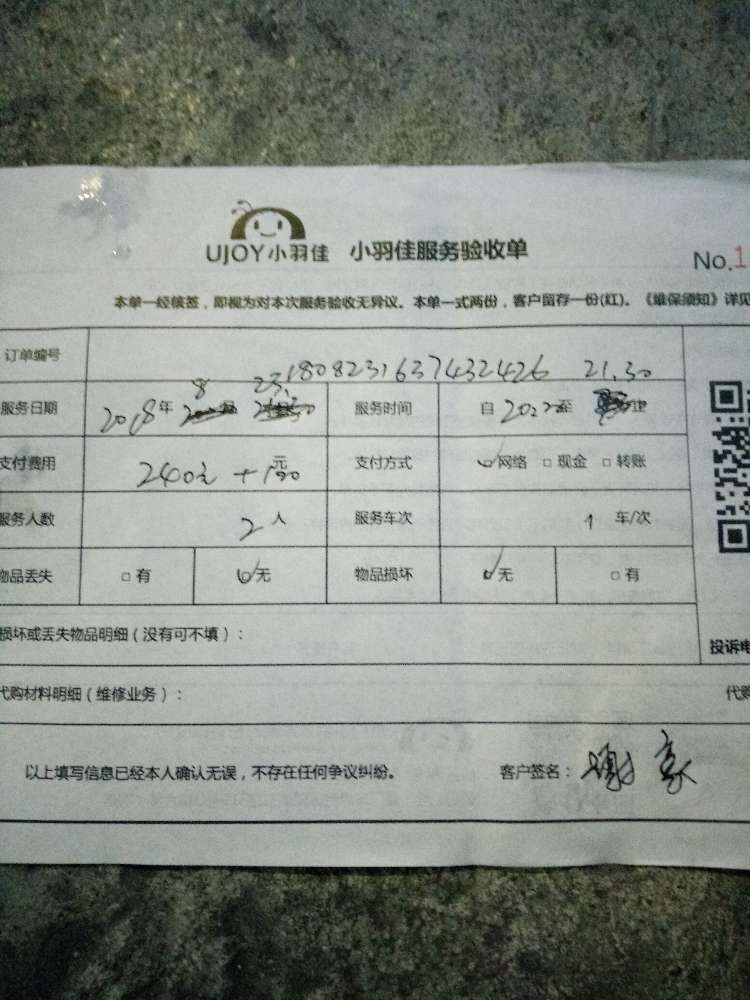 UJOY小羽佳 小羽佳服务验收单
No.1
本单一经核签，即视为对本次服务验收无异议。本单一式两份，客户留存一份(红)。《维保须知》详见
订单编号 1808231637432426
8 23 21.30
服务日期 2018年 服务时间 自 至
支付费用 240元+ 支付方式 网络 □现金 □转账
服务人数 2人 服务车次 1 车/次
物品丢失 □有 无 物品损坏 无 □有
损坏或丢失物品明细（没有可不填）：
投诉电
代购材料明细（维修业务）：
代购
以上填写信息已经本人确认无误，不存在任何争议纠纷。 客户签名：谢豪